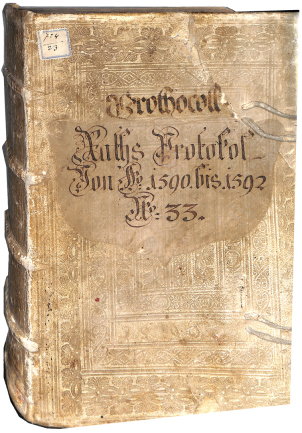 214
23
Prothocoll
Raths Protokol
Von Ao. 1590. bis. 1592
No: 33.